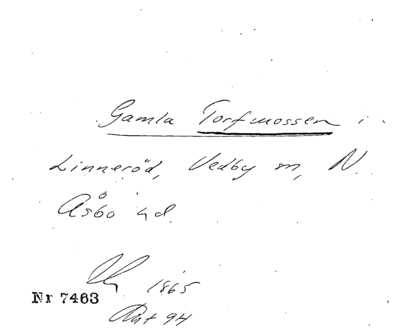 Gamla Torfmossen i
Linneröd, Vedby sn, N.
Åsbo hd.
1865
Nr 7463
94